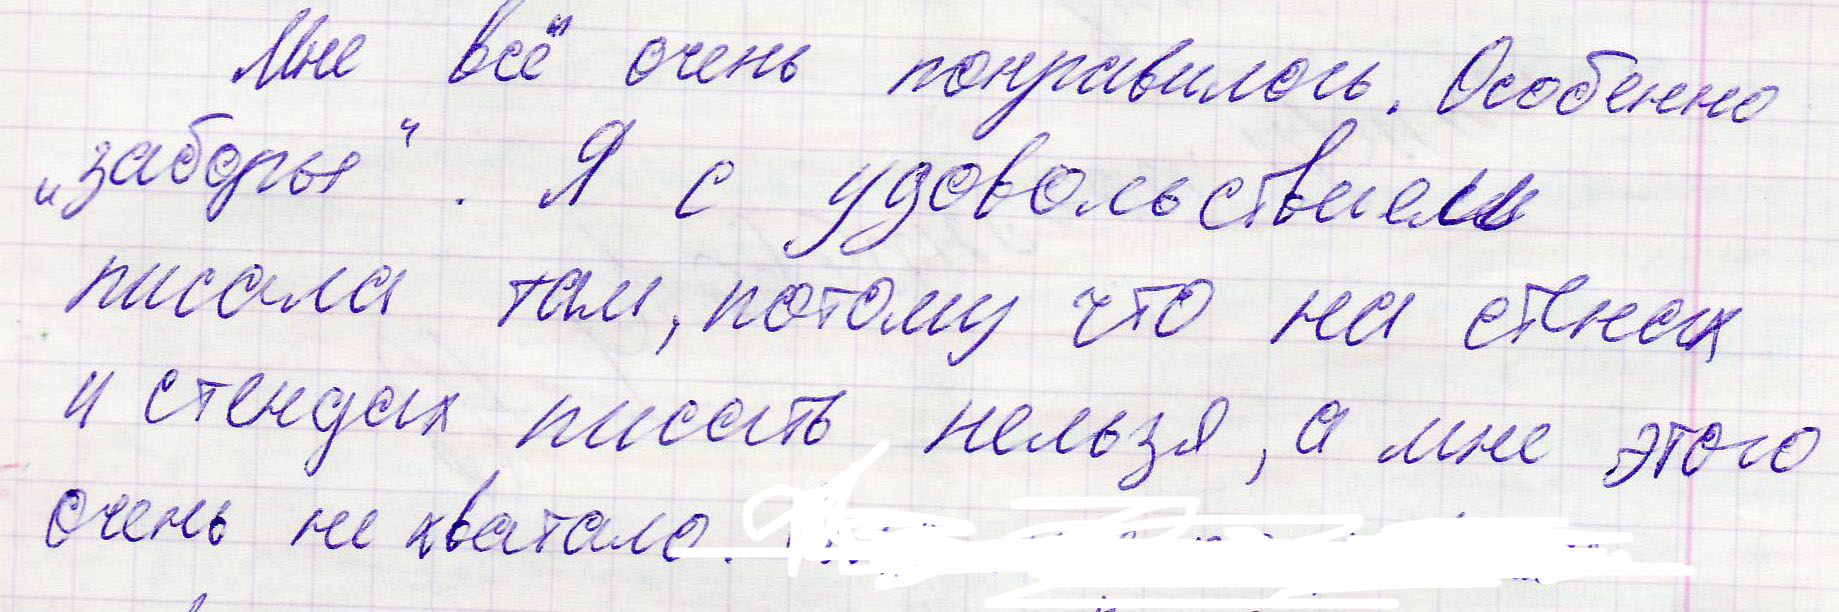 Мне всё очень понравилось. Особенно
„заборы“. Я с удовольствием
писала там, потому что на стенах
и стендах писать нельзя, а мне этого
очень не хватало.